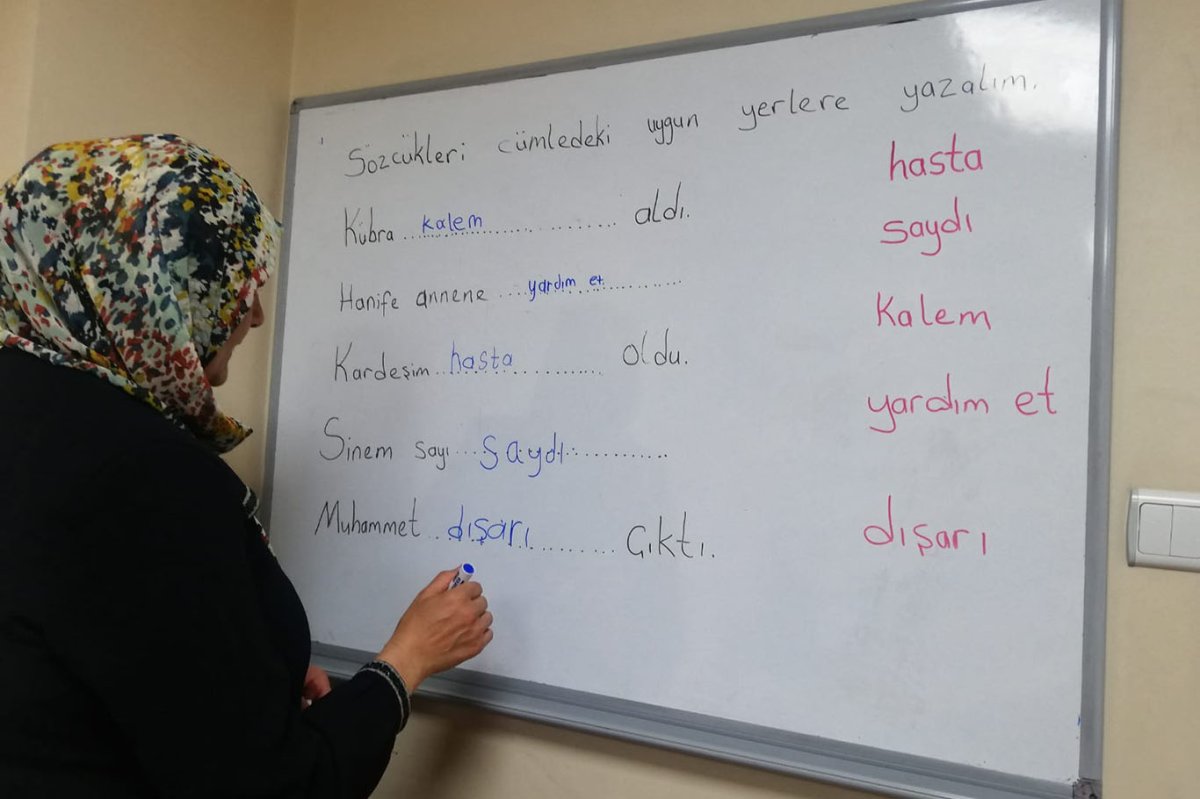 Sözcükleri cümledeki uygun yerlere yazalım.
Kübra ... kalem ............... aldı.
Hanife annene .... yardım et ...........
Kardeşim .. hasta ............ oldu.
Sinem sayı ... saydı ............
Muhammet .. dışarı ........... çıktı.
hasta
saydı
Kalem
yardım et
dışarı